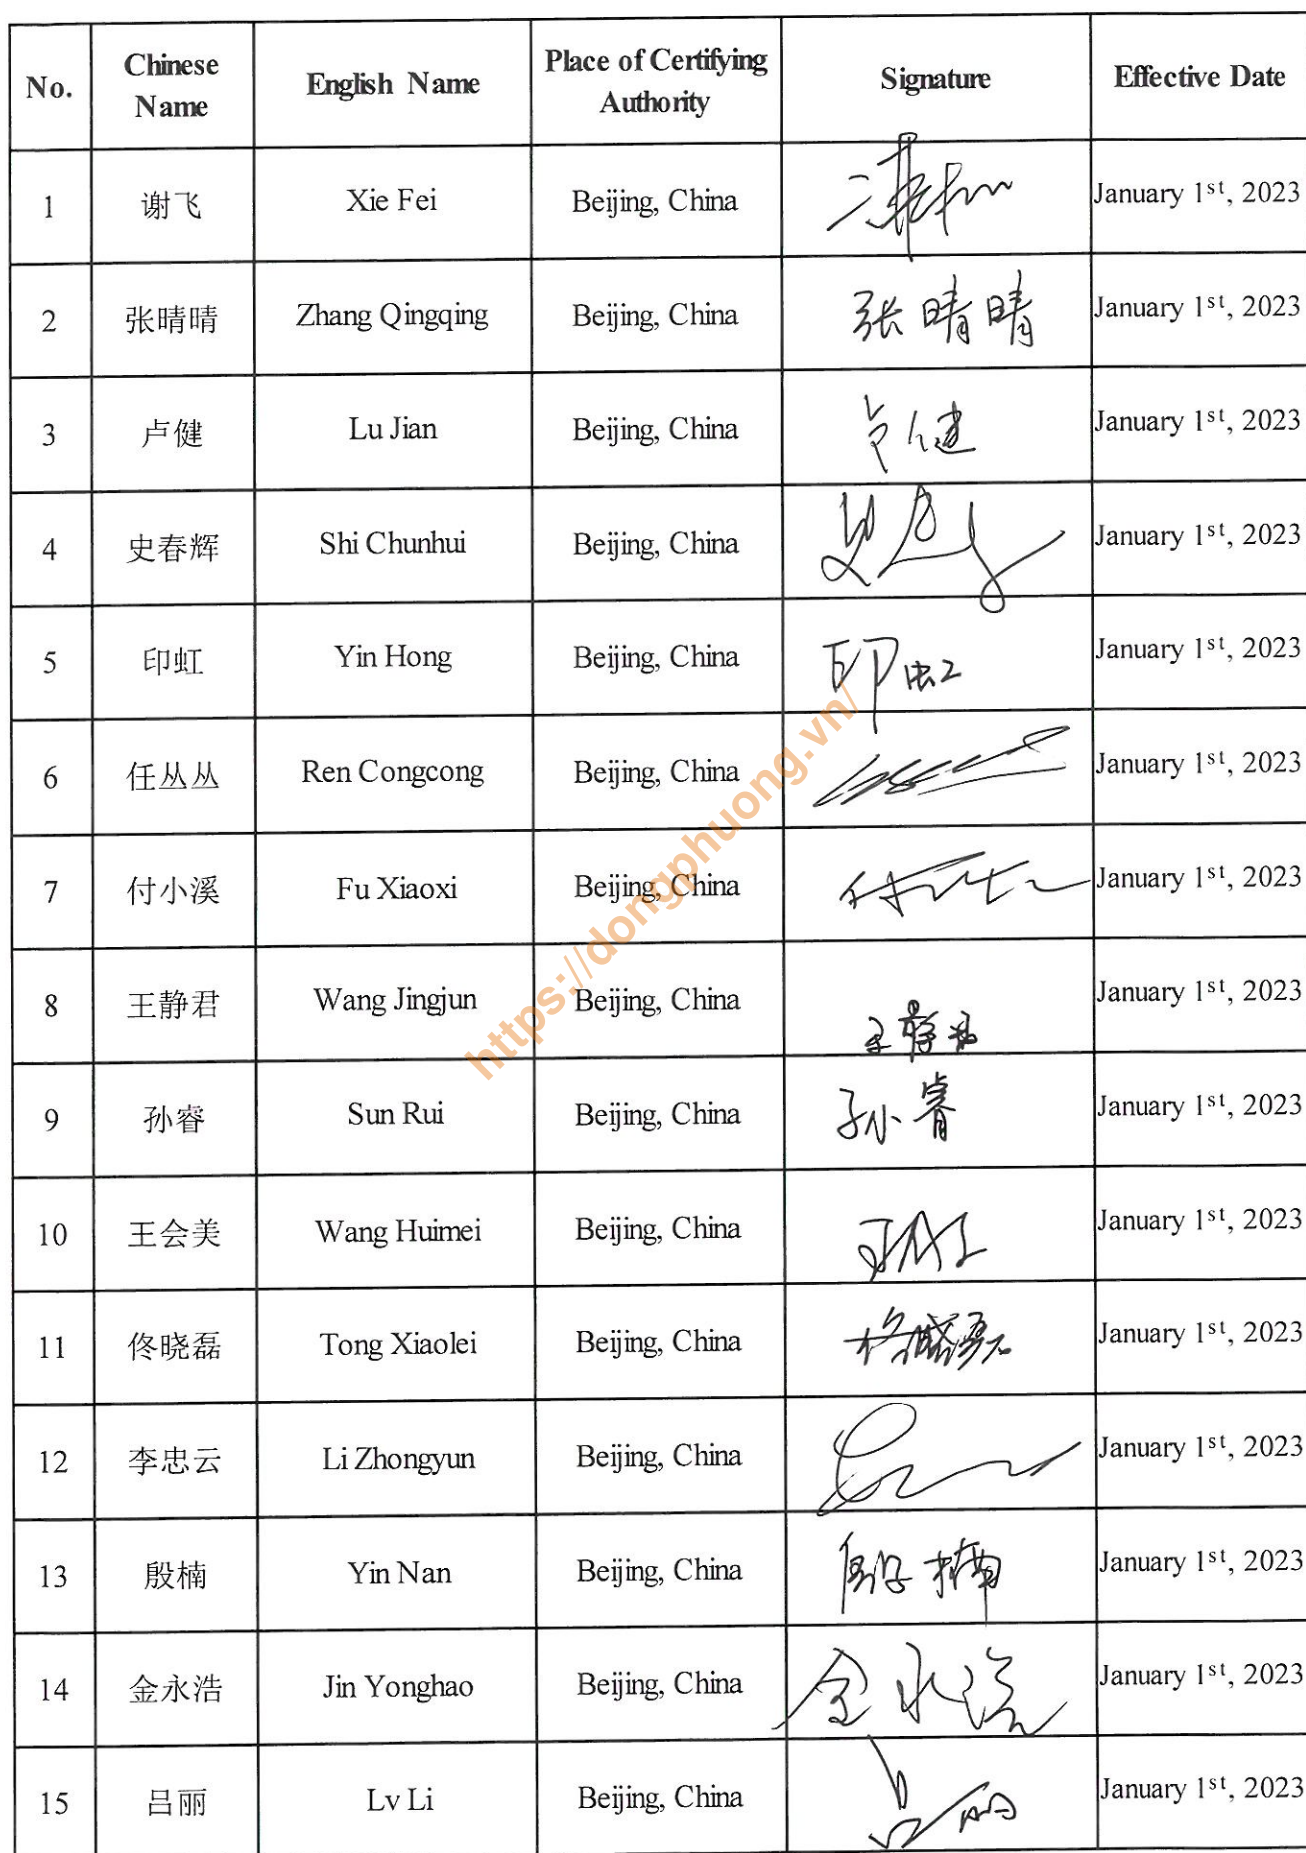 No. Chinese Name English Name Place of Certifying Authority Signature Effective Date
1 谢飞 Xie Fei Beijing, China January 1st, 2023
2 张晴晴 Zhang Qingqing Beijing, China 张晴晴 January 1st, 2023
3 卢健 Lu Jian Beijing, China 卢健 January 1st, 2023
4 史春辉 Shi Chunhui Beijing, China January 1st, 2023
5 印虹 Yin Hong Beijing, China 印虹 January 1st, 2023
6 任丛丛 Ren Congcong Beijing, China January 1st, 2023
7 付小溪 Fu Xiaoxi Beijing, China January 1st, 2023
8 王静君 Wang Jingjun Beijing, China 王静君 January 1st, 2023
9 孙睿 Sun Rui Beijing, China 孙睿 January 1st, 2023
10 王会美 Wang Huimei Beijing, China January 1st, 2023
11 佟晓磊 Tong Xiaolei Beijing, China January 1st, 2023
12 李忠云 Li Zhongyun Beijing, China January 1st, 2023
13 殷楠 Yin Nan Beijing, China 殷楠 January 1st, 2023
14 金永浩 Jin Yonghao Beijing, China 金永浩 January 1st, 2023
15 吕丽 Lv Li Beijing, China 吕丽 January 1st, 2023
https://dongphuong.vn/